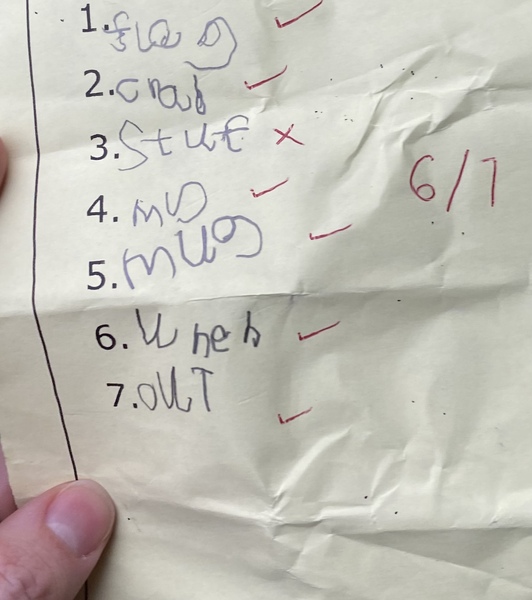 1. flag
2. crab
3. Stuf
4. my
5. mug
6. when
7. out
6/7